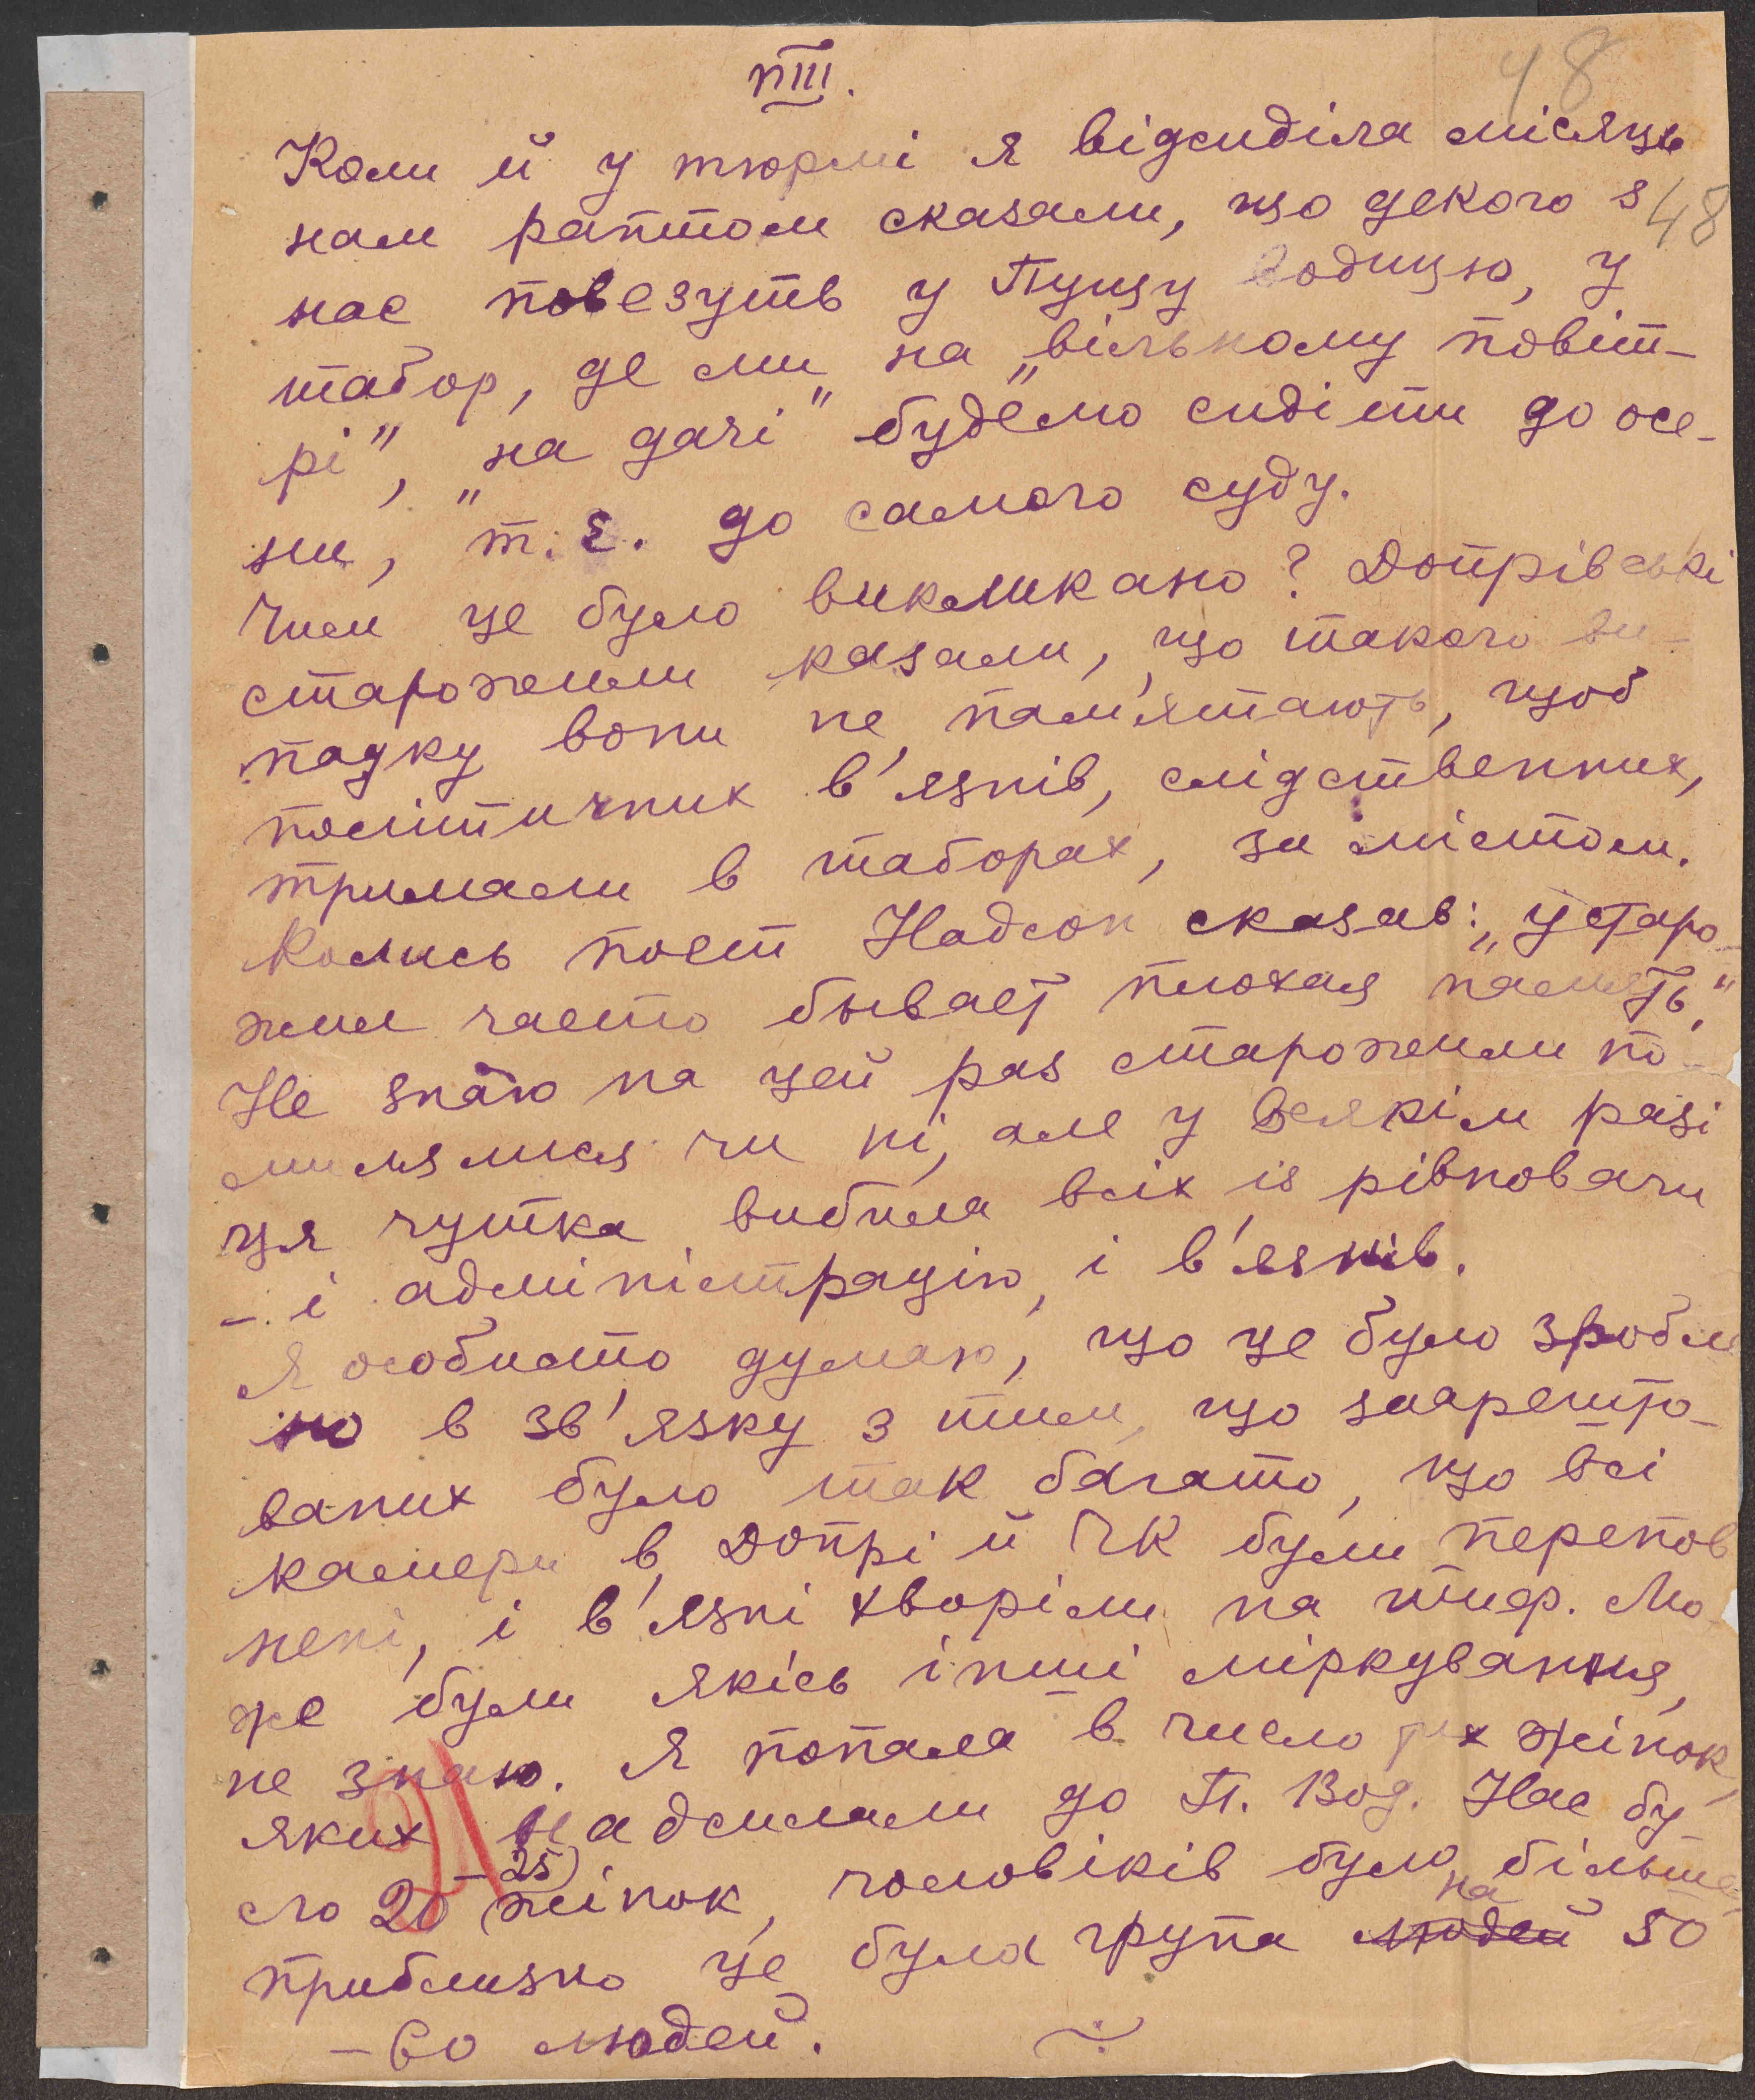 VIII.
48
Коли й у тюрмі я відсиділа місяць
нам раптом сказали, що декого з
48
нас повезуть у Пущу Водицю, у
табор, де ми на „вільному повіт-
рі", „на дачі" будемо сидіти до осе-
ни, т. є. до самого суду.
Чим це було викликано? Допрівські
старожили казали, що такого ви-
падку вони не пам'ятають, щоб
політичних в'язнів, слідственних,
тримали в таборах, за містом.
Колись поет Надсон сказав: „У старо-
жил часто бывает плохая память,"
Не знаю на цей раз старожили по-
милялися чи ні, але у всякім разі
ця чутка вибила всіх із рівноваги
- і адміністрацію, і в'язнів.
Я особисто думаю, що це було зробле
но в зв'язку з тим, що заарешто-
ваних було так багато, що всі
камери в Допрі й ЧК були перепов
нені, і в'язні хворіли на тиф. Мо-
же були якісь інші міркування,
не знаю. Я попала в число тих жінок,
яких надсилали до П. Вод. Нас бу
21
ло 20 - 25) жінок, чоловіків було більше
приблизно це була група людей на 50
- 60 людей.